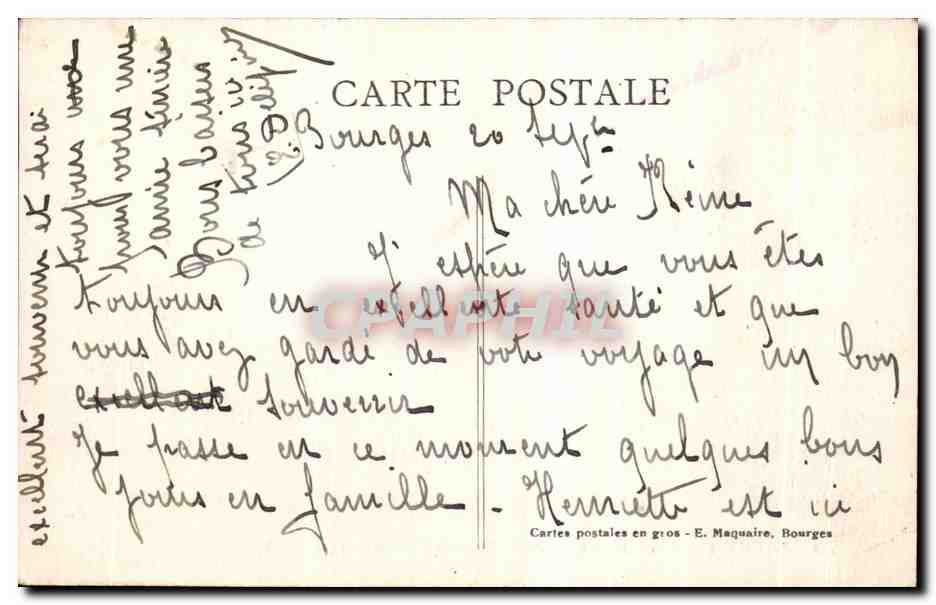 CARTE POSTALE
Bourges 20 Sept
Ma chère Reine
J'espère que vous êtes
toujours en exfellente santé et que
vous avez gardé de vote voyage un bon
excellent souvenir
Je passe en ce moment quelques bons
jours en famille - Henriette est ici
Cartes postales en gros - E. Maquaire, Bourges
excellent souvenir et serai
toujours
pour vous une
amie
Bons baisers
de tous
CPAPHIL